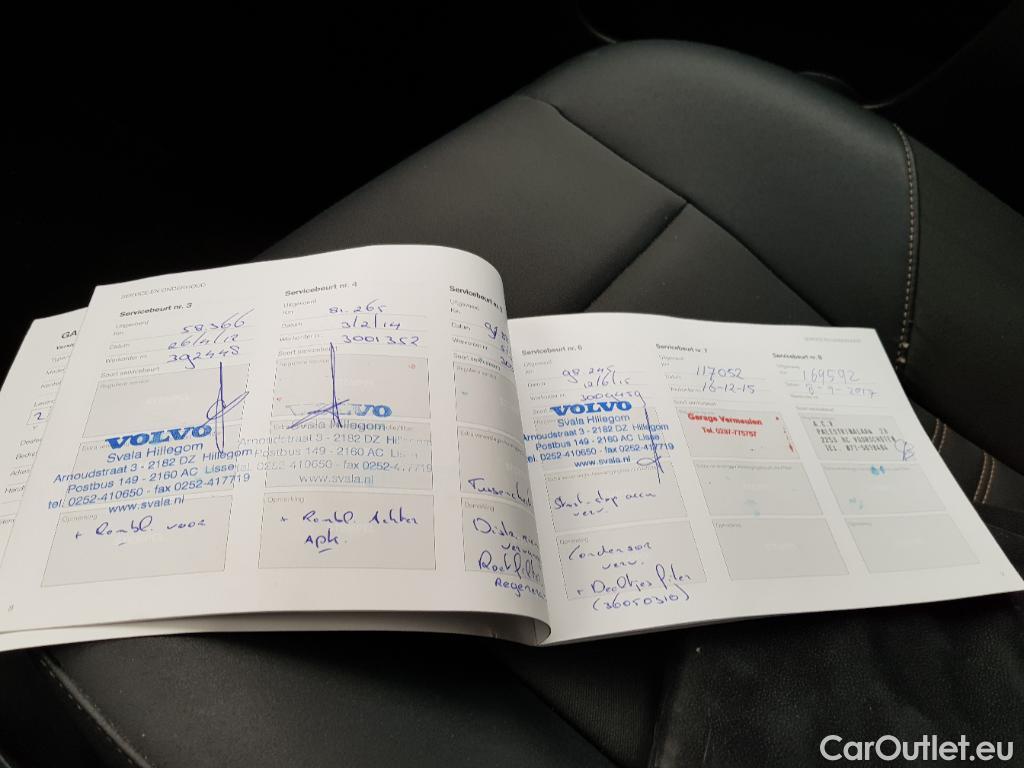 SERVICE EN ONDERHOUD
Servicebeurt nr. 3
Uitgevoerd
Km 58.366
Datum 26/4/12
Werkorder nr. 392448
Soort servicebeurt
Reguliere service
VOLVO
Svala Hillegom
Arnoudstraat 3 - 2182 DZ Hillegom
Postbus 149 - 2160 AC Lisse
tel. 0252-410650 - fax 0252-417719
www.svala.nl
Opmerking
+ Rembl. voor
8
Servicebeurt nr. 4
Uitgevoerd
Km 81.265
Datum 3/2/14
Werkorder nr. 3001352
Soort servicebeurt
Reguliere service
VOLVO
Svala Hillegom
Arnoudstraat 3 - 2182 DZ Hillegom
Postbus 149 - 2160 AC Lisse
tel. 0252-410650 - fax 0252-417719
www.svala.nl
Opmerking
+ Rembl. Achter
Apk.
Servicebeurt nr.
Uitgevoerd
Km
Datum
Werkorder nr.
Opmerking
Servicebeurt nr. 6
Uitgevoerd
Km 98.245
Datum 12/6/15
Werkorder nr. 3004459
VOLVO
Svala Hillegom
Arnoudstraat 3 - 2182 DZ Hillegom
Postbus 149 - 2160 AC Lisse
tel. 0252-410650 - fax 0252-417719
www.svala.nl
Start-stop accu
verv.
Opmerking
Condensor
verv.
+ Deeltjes filter
(36050310)
Servicebeurt nr. 7
Uitgevoerd
Km 117052
Datum
Werkorder nr. 16-12-15
Soort servicebeurt
Garage Vermeulen
Tel. 0297-775757
Opmerking
Servicebeurt nr. 8
Uitgevoerd
Km 169592
Datum 8-9-2017
Werkorder nr.
Soort servicebeurt
A.C.V.
2253 VOORSCHOTEN
Opmerking
CarOutlet.eu